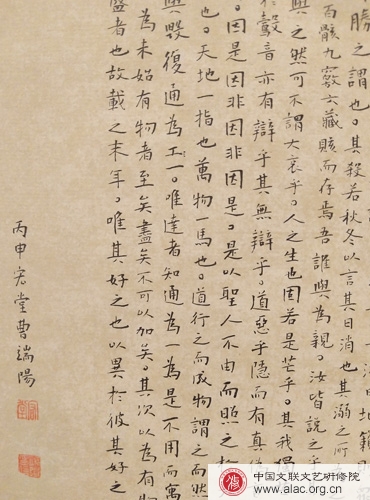 勝之謂也。其殺若秋冬以言其日消也其溺之所
百骸九竅六藏賅而存焉吾誰與為親。汝皆說之乎
與之然可不謂大哀乎。人之生也固若是芒乎。其我獨
於鷇音亦有辯乎其無辯乎。道惡乎隱而有真
。因是因非因非因是。是以聖人不由而照之於
也。天地一指也萬物一馬也。道行之而成物謂之而然
與毀復通為一。唯達者知通為一為是不用而寓
為未始有物者至矣盡矣不可以加矣。其次以為有物
盛者也故載之末年。唯其好之也以異於彼其好之
丙申宏堂曹端陽
中国文联文艺研修院
www.alac.org.cn